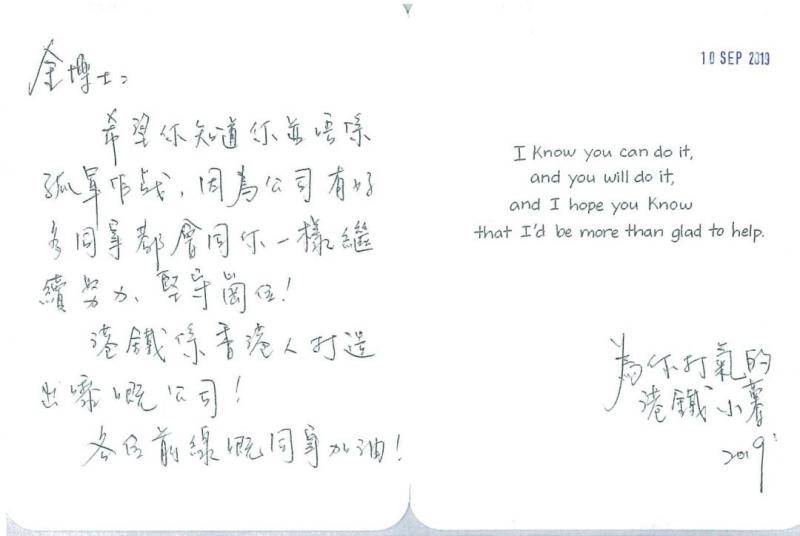 金博士：
希望你知道你並唔係
孤軍作战，因為公司有好
多同事都會同你一樣繼
續努力、堅守崗位！
港鐵係香港人打造
出嚟嘅公司！
各位前線嘅同事加油！
10 SEP 2019
I Know you can do it,
and you will do it,
and I hope you Know
that I'd be more than glad to help.
為你打氣的
港鐵小薯
2019